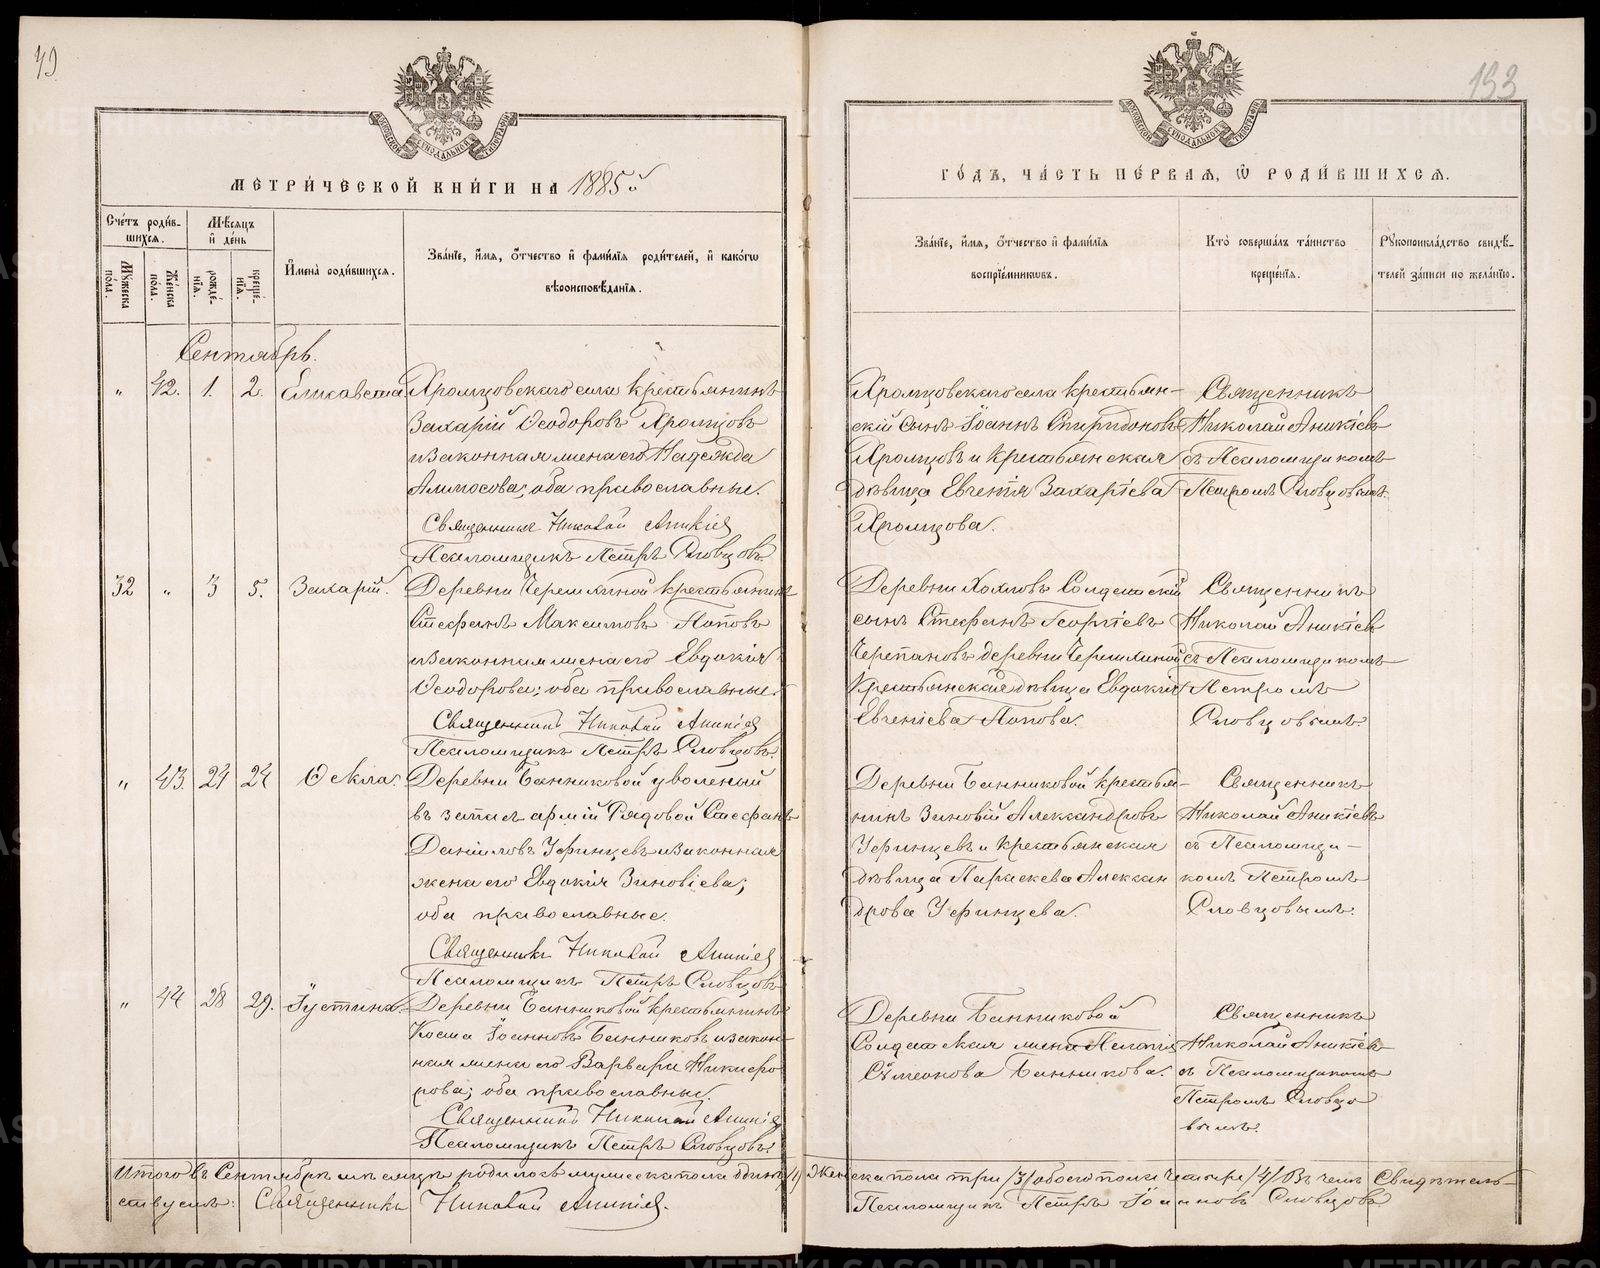 49
МЕТРИ́ЧЕСКОЙ КНИ́ГИ НА 1885й
Сче́тъ роди́в-
шихся.
Мѣ́сяцъ
и҆ де́нь
Мꙋ́жеска
по́ла.
Же́нска
по́ла.
рожде́-
нїѧ.
креще́-
нїѧ.
И҆мена̀ роди́вшихся.
Зва́нїе, и҆́мѧ, ѻ҆́тчество и҆ фами́лїѧ роди́телей, и҆ како́гѡ
вѣроисповѣ́данїѧ.
Сентябрь.
„ 42. 1. 2. Елисавета
Хромцовскаго села крестьянинъ
Захарій Ѳеодоровъ Хромцовъ
и законная жена его Надежда
оба православные.
Священникъ Николай Аникіев
Псаломщикъ Петръ Словцовъ.
32 „ 3 5. Захарій.
Деревни Черемхиной крестьянинъ
Стефанъ Максимовъ Поповъ
и законная жена его Евдокія
Ѳеодорова; оба православные.
Священникъ Николай Аникіев
Псаломщикъ Петръ Словцовъ.
„ 43. 24 24 Ѳекла.
Деревни Банниковой уволеный
въ запасъ армій Рядовой Стефанъ
Даниловъ Уфинцевъ и законная
жена его Евдокія Зиновіева;
оба православные.
Священникъ Николай Аникіев
Псаломщикъ Петръ Словцовъ
„ 44 28 29. Іустина.
Деревни Банниковой крестьянинъ
Косма Іоанновъ Банниковъ и закон-
ная жена его Варвара Никифо
рова; оба православные.
Священникъ Николай Аникіев
Псаломщикъ Петръ Словцовъ.
Итого въ Сентябрѣ мѣсяцѣ родилось мужеска пола одинъ /1/ Жен
ствуемъ: Священникъ Николай Аникіев.
153
ГО́ДЪ, ЧА́СТЬ ПЕ́РВАѦ, Ѡ҆ РОДИ́ВШИХСѦ.
Зва́нїе, и҆́мѧ, ѻ҆́тчество и҆ фами́лїѧ
воспрїе́мникѡвъ.
Кто̀ соверша́лъ та́инство
креще́нїѧ.
Рꙋкоприкла́дство свидѣ́-
телей за́писи по жела́нїю.
Хромцовскаго села крестьян-
скій сынъ Іоаннъ Спиридоновъ
Хромцовъ и крестьянская
дѣвица Евгенія Захаріева
Хромцова.
Священникъ
Николай Аникіевъ
съ Псаломщикомъ
Петромъ Словцовымъ.
Деревни Хохловъ Солдатскій
сынъ Стефанъ Георгіевъ
Черепановъ деревни Черемхиной
Крестьянская дѣвица Евдокія
Евгеніева Попова.
Священникъ
Николай Аникіев
съ Псаломщикомъ
Петромъ
Словцовымъ.
Деревни Банниковой крестья-
нинъ Зиновій Александровъ
Уфинцевъ и крестьянская
дѣвица Параскева Алексан
дрова Уфинцева.
Священникъ
Николай Аникіевъ
съ Псаломщи-
комъ Петромъ
Словцовымъ.
Деревни Банниковой
Солдатская жена Пелагія
Сѵмеонова Банникова.
Священникъ
Николай Аникіев
съ Псаломщикомъ
Петромъ Словцо
вымъ.
ска пола три /3/ обоего пола четыре /4/ Въ чемъ Свидѣтель-
Псаломщикъ Петръ Іоанновъ Словцовъ